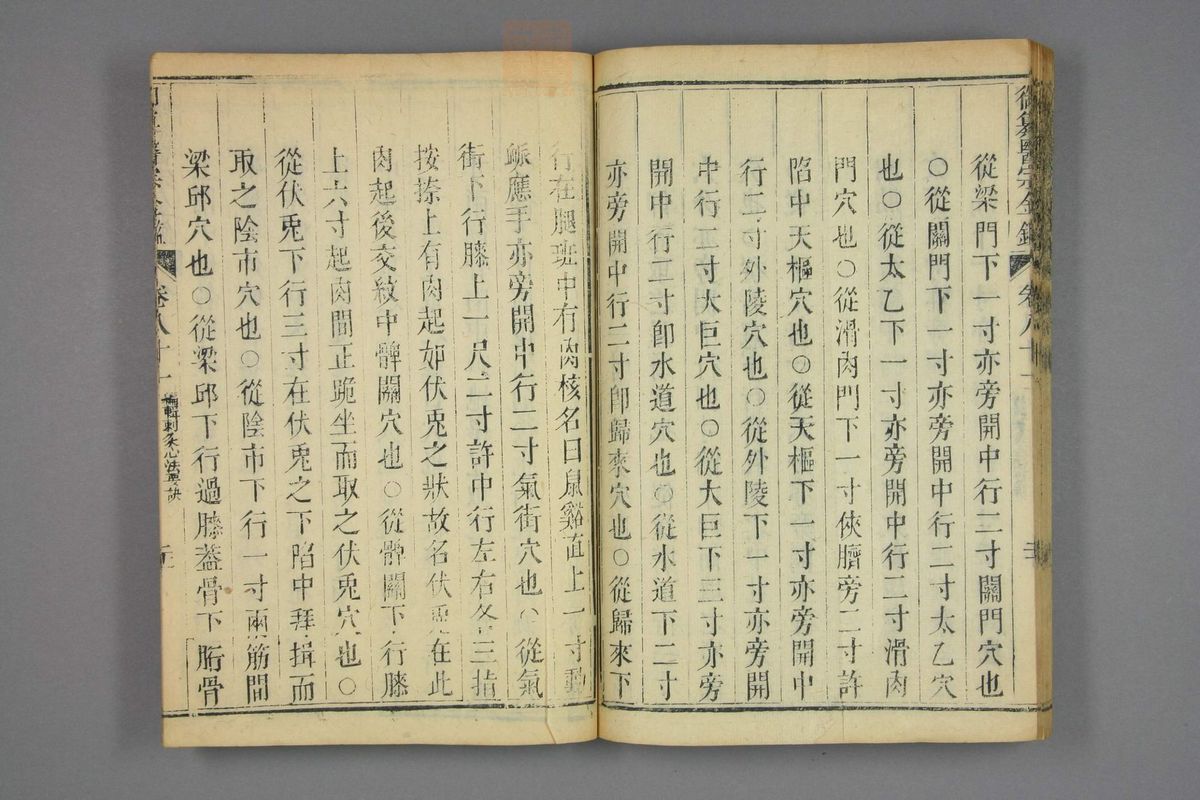 御纂醫宗金鑑 卷八十一
從梁門下一寸亦旁開中行二寸關門穴也
○從關門下一寸亦旁開中行二寸太乙穴
也○從太乙下一寸亦旁開中行二寸滑肉
門穴也○從滑肉門下一寸俠臍旁二寸許
陷中天樞穴也○從天樞下一寸亦旁開中
行二寸外陵穴也○從外陵下一寸亦旁開
中行二寸大巨穴也○從大巨下三寸亦旁
開中行二寸卽水道穴也○從水道下二寸
亦旁開中行二寸卽歸來穴也○從歸來下
行在腿班中有肉核名曰鼠谿直上一寸動
脈應手亦旁開中行二寸氣街穴也○從氣
街下行膝上一尺二寸許中行左右各三指
按捺上有肉起如伏兎之狀故名伏兎在此
肉起後交紋中髀關穴也○從髀關下行膝
上六寸起肉間正跪坐而取之伏兎穴也○
從伏兎下行三寸在伏兎之下陷中拜揖而
取之陰市穴也○從陰市下行一寸兩筋間
梁邱穴也○從梁邱下行過膝蓋骨下胻骨
卷八十一 編輯刺灸心法要訣